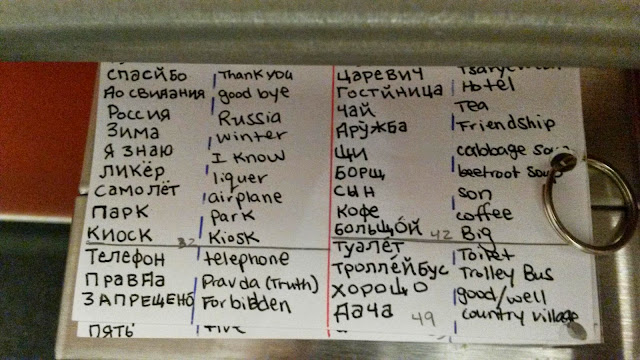 спасйбо Thank you
До свидания good bye
Россия Russia
Зима winter
Я знаю I know
ликёр liquer
самолёт airplane
парк park
киоск 32 Kiosk
Телефон telephone
Правда Pravda (Truth)
ЗАПРЕЩЕНО Forbidden
пять five
царевич
Гостйница Hotel
чай Tea
Дружба Friendship
щи cabbage soup
борщ beetroot soup
сын son
кофе coffee
большо́й 42 Big
туалет Toilet
троллейбус Trolley Bus
хорошо good/well
Дача 49 country village